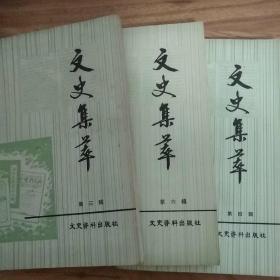 文史集萃
第三辑
文史资料出版社
文史集萃
第六辑
文史资料出版社
文史集萃
第四辑
文史资料出版社